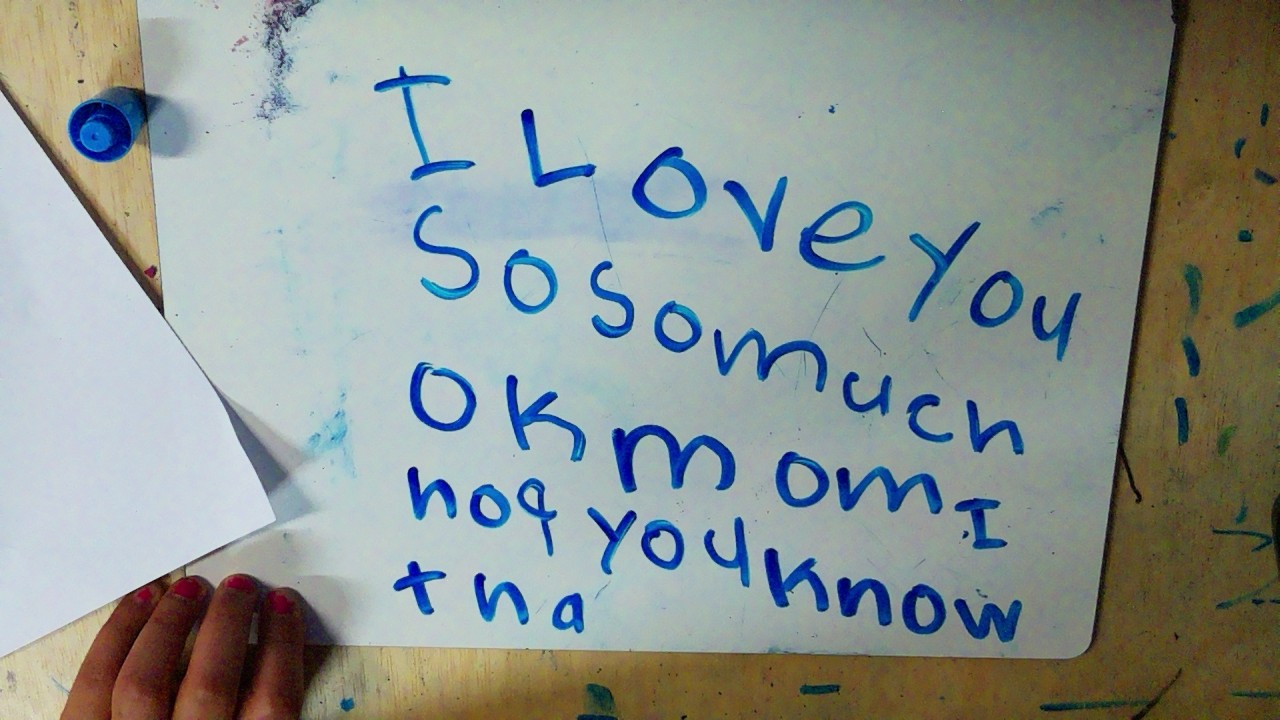 I Love you
So so much
OK mom I
hoq you know
tha